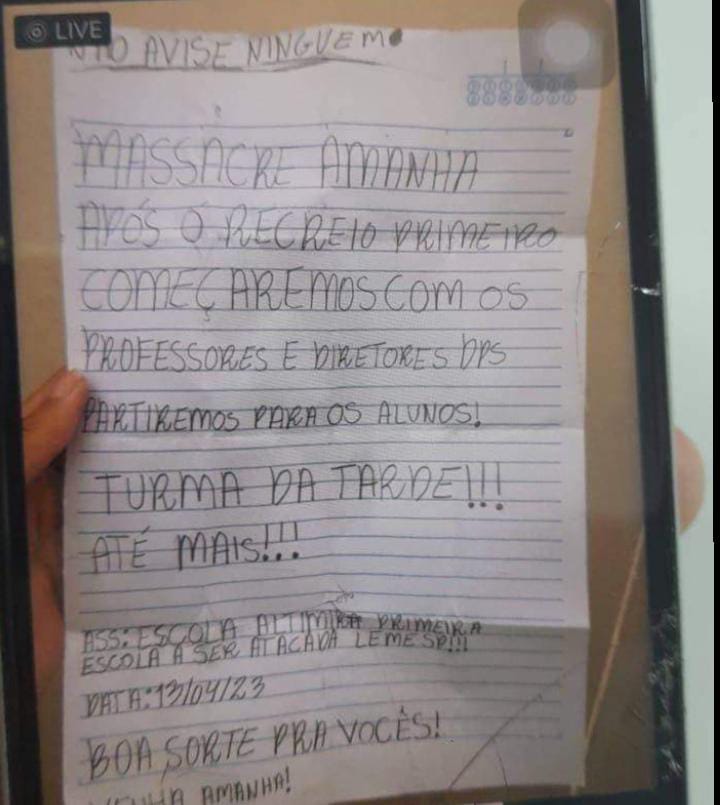 LIVE
NÃO AVISE NINGUEM
MASSACRE AMANHA
APÓS O RECREIO PRIMEIRO
COMEÇAREMOS COM OS
PROFESSORES E DIRETORES DPS
PARTIREMOS PARA OS ALUNOS!
TURMA DA TARDE!!!
ATÉ MAIS!!!
ASS: ESCOLA ALTIMIRA PRIMEIRA
ESCOLA A SER ATACADA LEME SP!!!
DATA: 13/04/23
BOA SORTE PRA VOCÊS!
VENHA AMANHA!